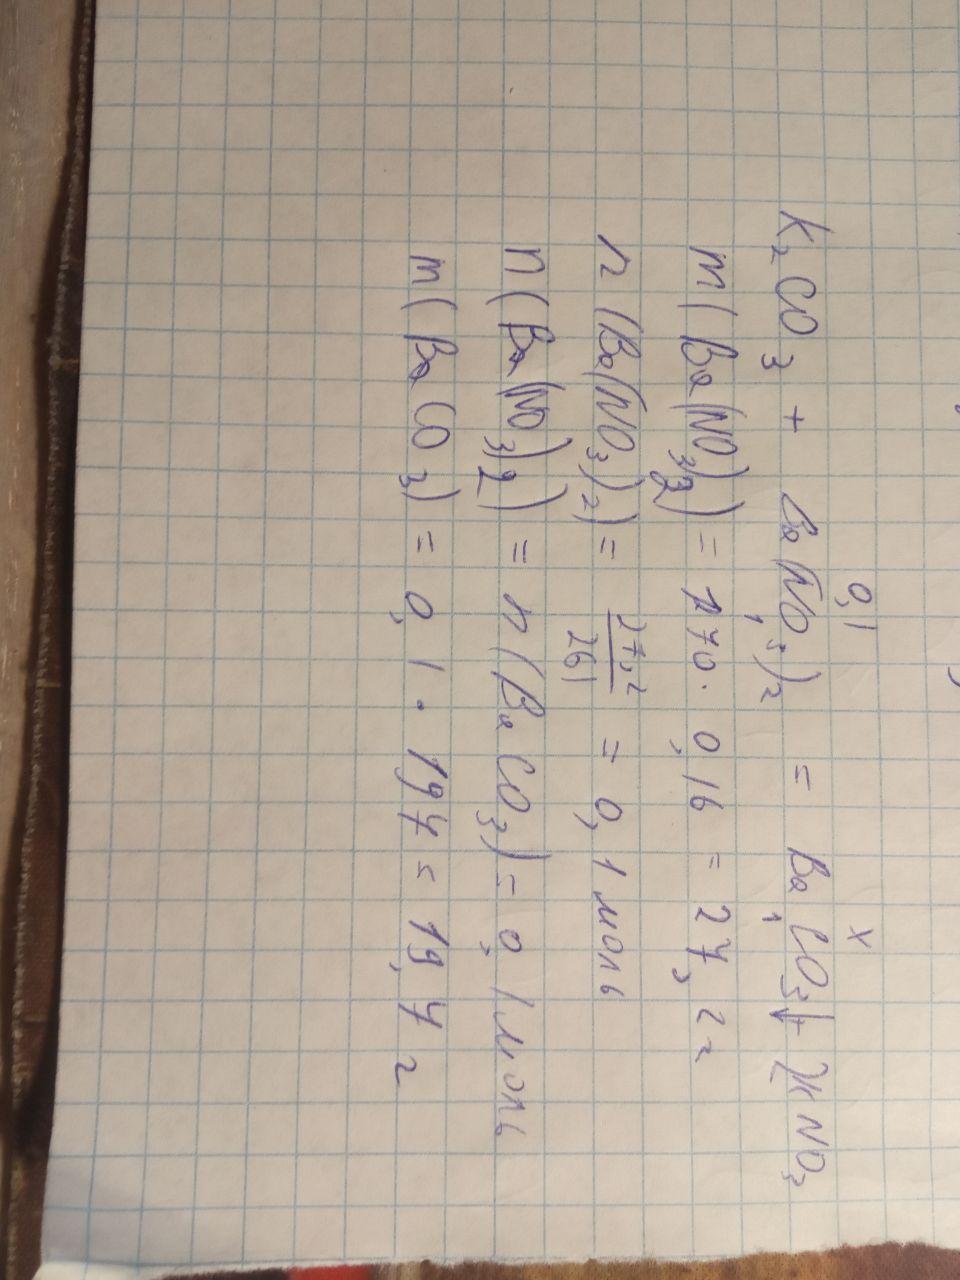 0,1 x
K₂CO₃ + Ba(NO₃)₂ = BaCO₃↓ + 2KNO₃
1 1
m(Ba(NO₃)₂) = 170 · 0,16 = 27,2 г
n(Ba(NO₃)₂) = 27,2/261 = 0,1 моль
n(Ba(NO₃)₂) = n(BaCO₃) = 0,1 моль
m(BaCO₃) = 0,1 · 197 = 19,7 г